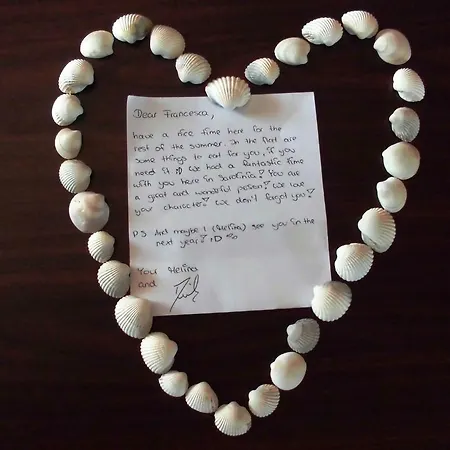 Dear Francesca,
have a nice time here for the
rest of the summer. In the flat are
some things to eat for you, if you
need it :D We had a fantastic time
with you here in Sardinia! You are
a great and wonderful person! We love
your character! We don't forget you!
P.S. And maybe I (Melina) see you in the
next year! :D
Your Melina
and